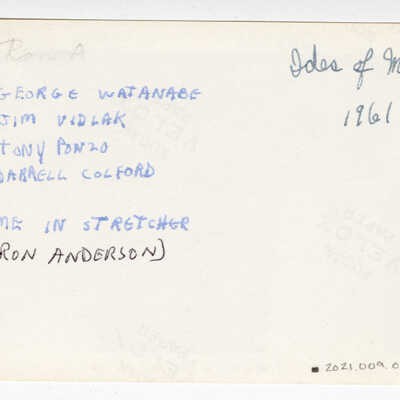 Ides of M
1961
GEORGE WATANABE
JIM VIDLAK
TONY PONZO
DARRELL COLFORD
ME IN STRETCHER
(RON ANDERSON)
2021.009.0